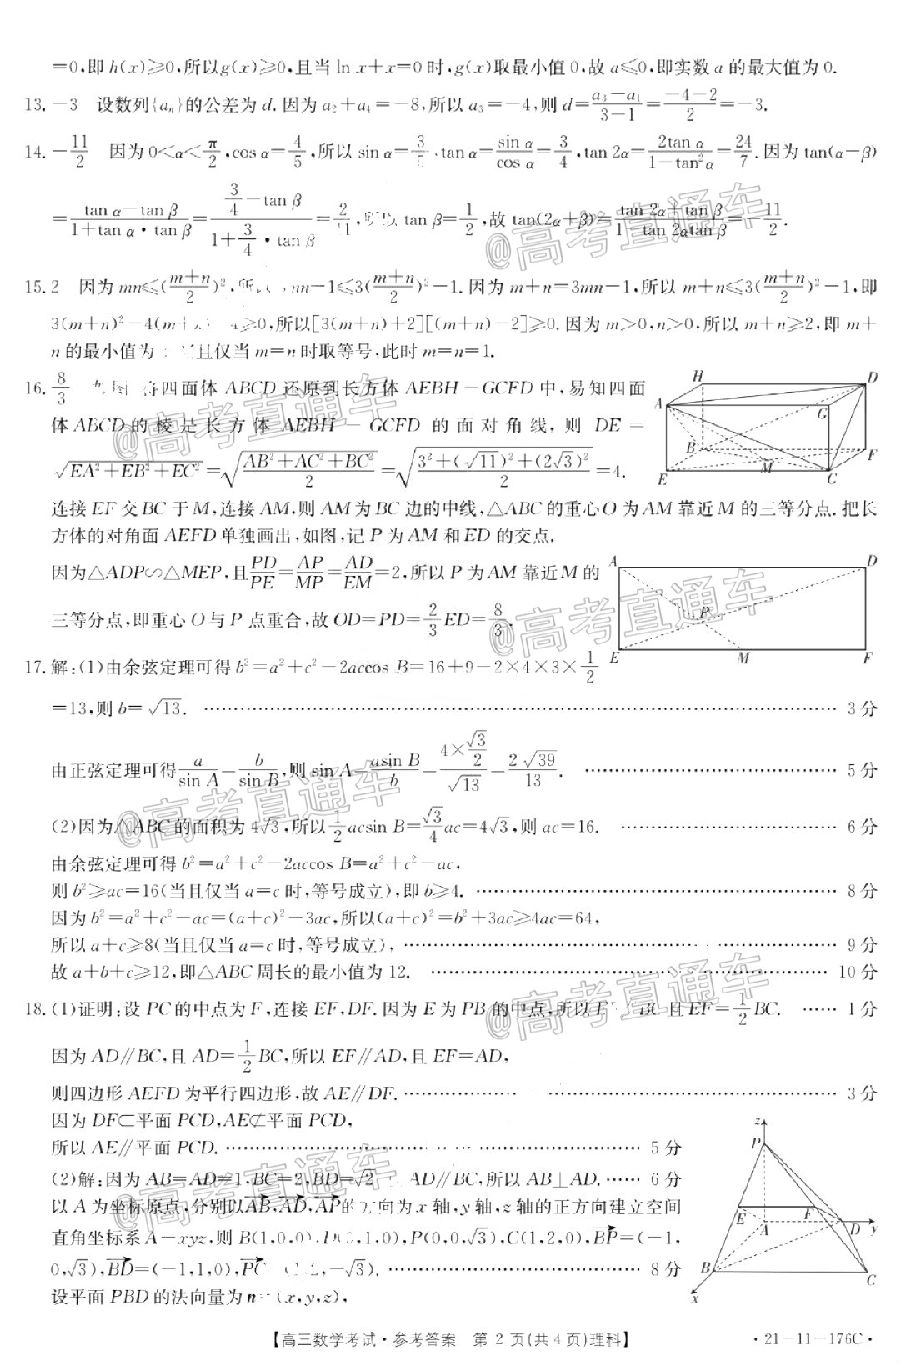 =0,即 h(x)≥0,所以 g(x)≥0,且当 ln x+x=0 时,g(x)取最小值 0,故 a≤0,即实数 a 的最大值为 0.
13. -3 设数列{aₙ}的公差为 d. 因为 a₂+a₄=-8,所以 a₃=-4,则 d=(a₃-a₁)/(3-1)=(-4-2)/2=-3.
14. -11/2 因为 0<α<π/2,cos α=4/5,所以 sin α=3/ ,tan α=sin α/cos α=3/4,tan 2α=2tan α/(1-tan²α)=24/7. 因为 tan(α-β)
=(tan α-tan β)/(1+tan α·tan β)=(3/4-tan β)/(1+3/4·tan β)=2/11,所以 tan β=1/2,故 tan(2α+β)=(tan 2α+tan β)/(1-tan 2αtan β)=-11/2.
15. 2 因为 mn≤((m+n)/2)²,所以 mn-1≤3((m+n)/2)²-1. 因为 m+n=3mn-1,所以 m+n≤3((m+n)/2)²-1,即
3(m+n)²-4(m+n)-4≥0,所以[3(m+n)+2][(m+n)-2]≥0. 因为 m>0,n>0,所以 m+n≥2,即 m+
n 的最小值为 且仅当 m=n 时取等号,此时 m=n=1.
16. 8/3 图 将四面体 ABCD 还原到长方体 AEBH-GCFD 中,易知四面
体 ABCD 的棱是长方体 AEBH-GCFD 的面对角线,则 DE=
√(EA²+EB²+EC²)=√((AB²+AC²+BC²)/2)=√((3²+(√11)²+(2√3)²)/2)=4.
H D A G B F M E C
连接 EF 交 BC 于 M,连接 AM,则 AM 为 BC 边的中线,△ABC 的重心 O 为 AM 靠近 M 的三等分点. 把长
方体的对角面 AEFD 单独画出,如图,记 P 为 AM 和 ED 的交点,
因为△ADP∽△MEP,且 PD/PE=AP/MP=AD/EM=2,所以 P 为 AM 靠近 M 的
三等分点,即重心 O 与 P 点重合,故 OD=PD=2/3 ED=8/3.
A D P E M F
17. 解:(1)由余弦定理可得 b²=a²+c²-2accos B=16+9-2×4×3×1/2
=13,则 b=√13. …… 3 分
由正弦定理可得 a/sin A=b/sin B,则 sin A=asin B/b=(4×√3/2)/√13=2√39/13. …… 5 分
(2)因为△ABC 的面积为 4√3,所以 1/2 acsin B=√3/4 ac=4√3,则 ac=16. …… 6 分
由余弦定理可得 b²=a²+c²-2accos B=a²+c²-ac,
则 b²≥ac=16(当且仅当 a=c 时,等号成立),即 b≥4. …… 8 分
因为 b²=a²+c²-ac=(a+c)²-3ac,所以(a+c)²=b²+3ac≥4ac=64,
所以 a+c≥8(当且仅当 a=c 时,等号成立), …… 9 分
故 a+b+c≥12,即△ABC 周长的最小值为 12. …… 10 分
18. (1)证明:设 PC 的中点为 F,连接 EF,DF. 因为 E 为 PB 的中点,所以 E BC 且 EF=1/2 BC. …… 1 分
因为 AD∥BC,且 AD=1/2 BC,所以 EF∥AD,且 EF=AD,
则四边形 AEFD 为平行四边形,故 AE∥DF. …… 3 分
因为 DF⊂平面 PCD,AE⊄平面 PCD,
所以 AE∥平面 PCD. …… 5 分
(2)解:因为 AB=AD=1,BC=2,BD=√2, AD∥BC,所以 AB⊥AD. …… 6 分
以 A 为坐标原点,分别以AB,AD,AP的方向为 x 轴,y 轴,z 轴的正方向建立空间
直角坐标系 A-xyz,则 B(1,0,0), ,1,0),P(0,0,√3),C(1,2,0),BP=(-1,
0,√3),BD=(-1,1,0),PC 2,-√3). …… 8 分
设平面 PBD 的法向量为 n=(x,y,z),
z P E F A D y B C x
【高三数学考试·参考答案 第 2 页(共 4 页)理科】
·21-11-176C·
@高考直通车
@高考直通车
@高考直通车
@高考直通车
@高考直通车
@高考直通车